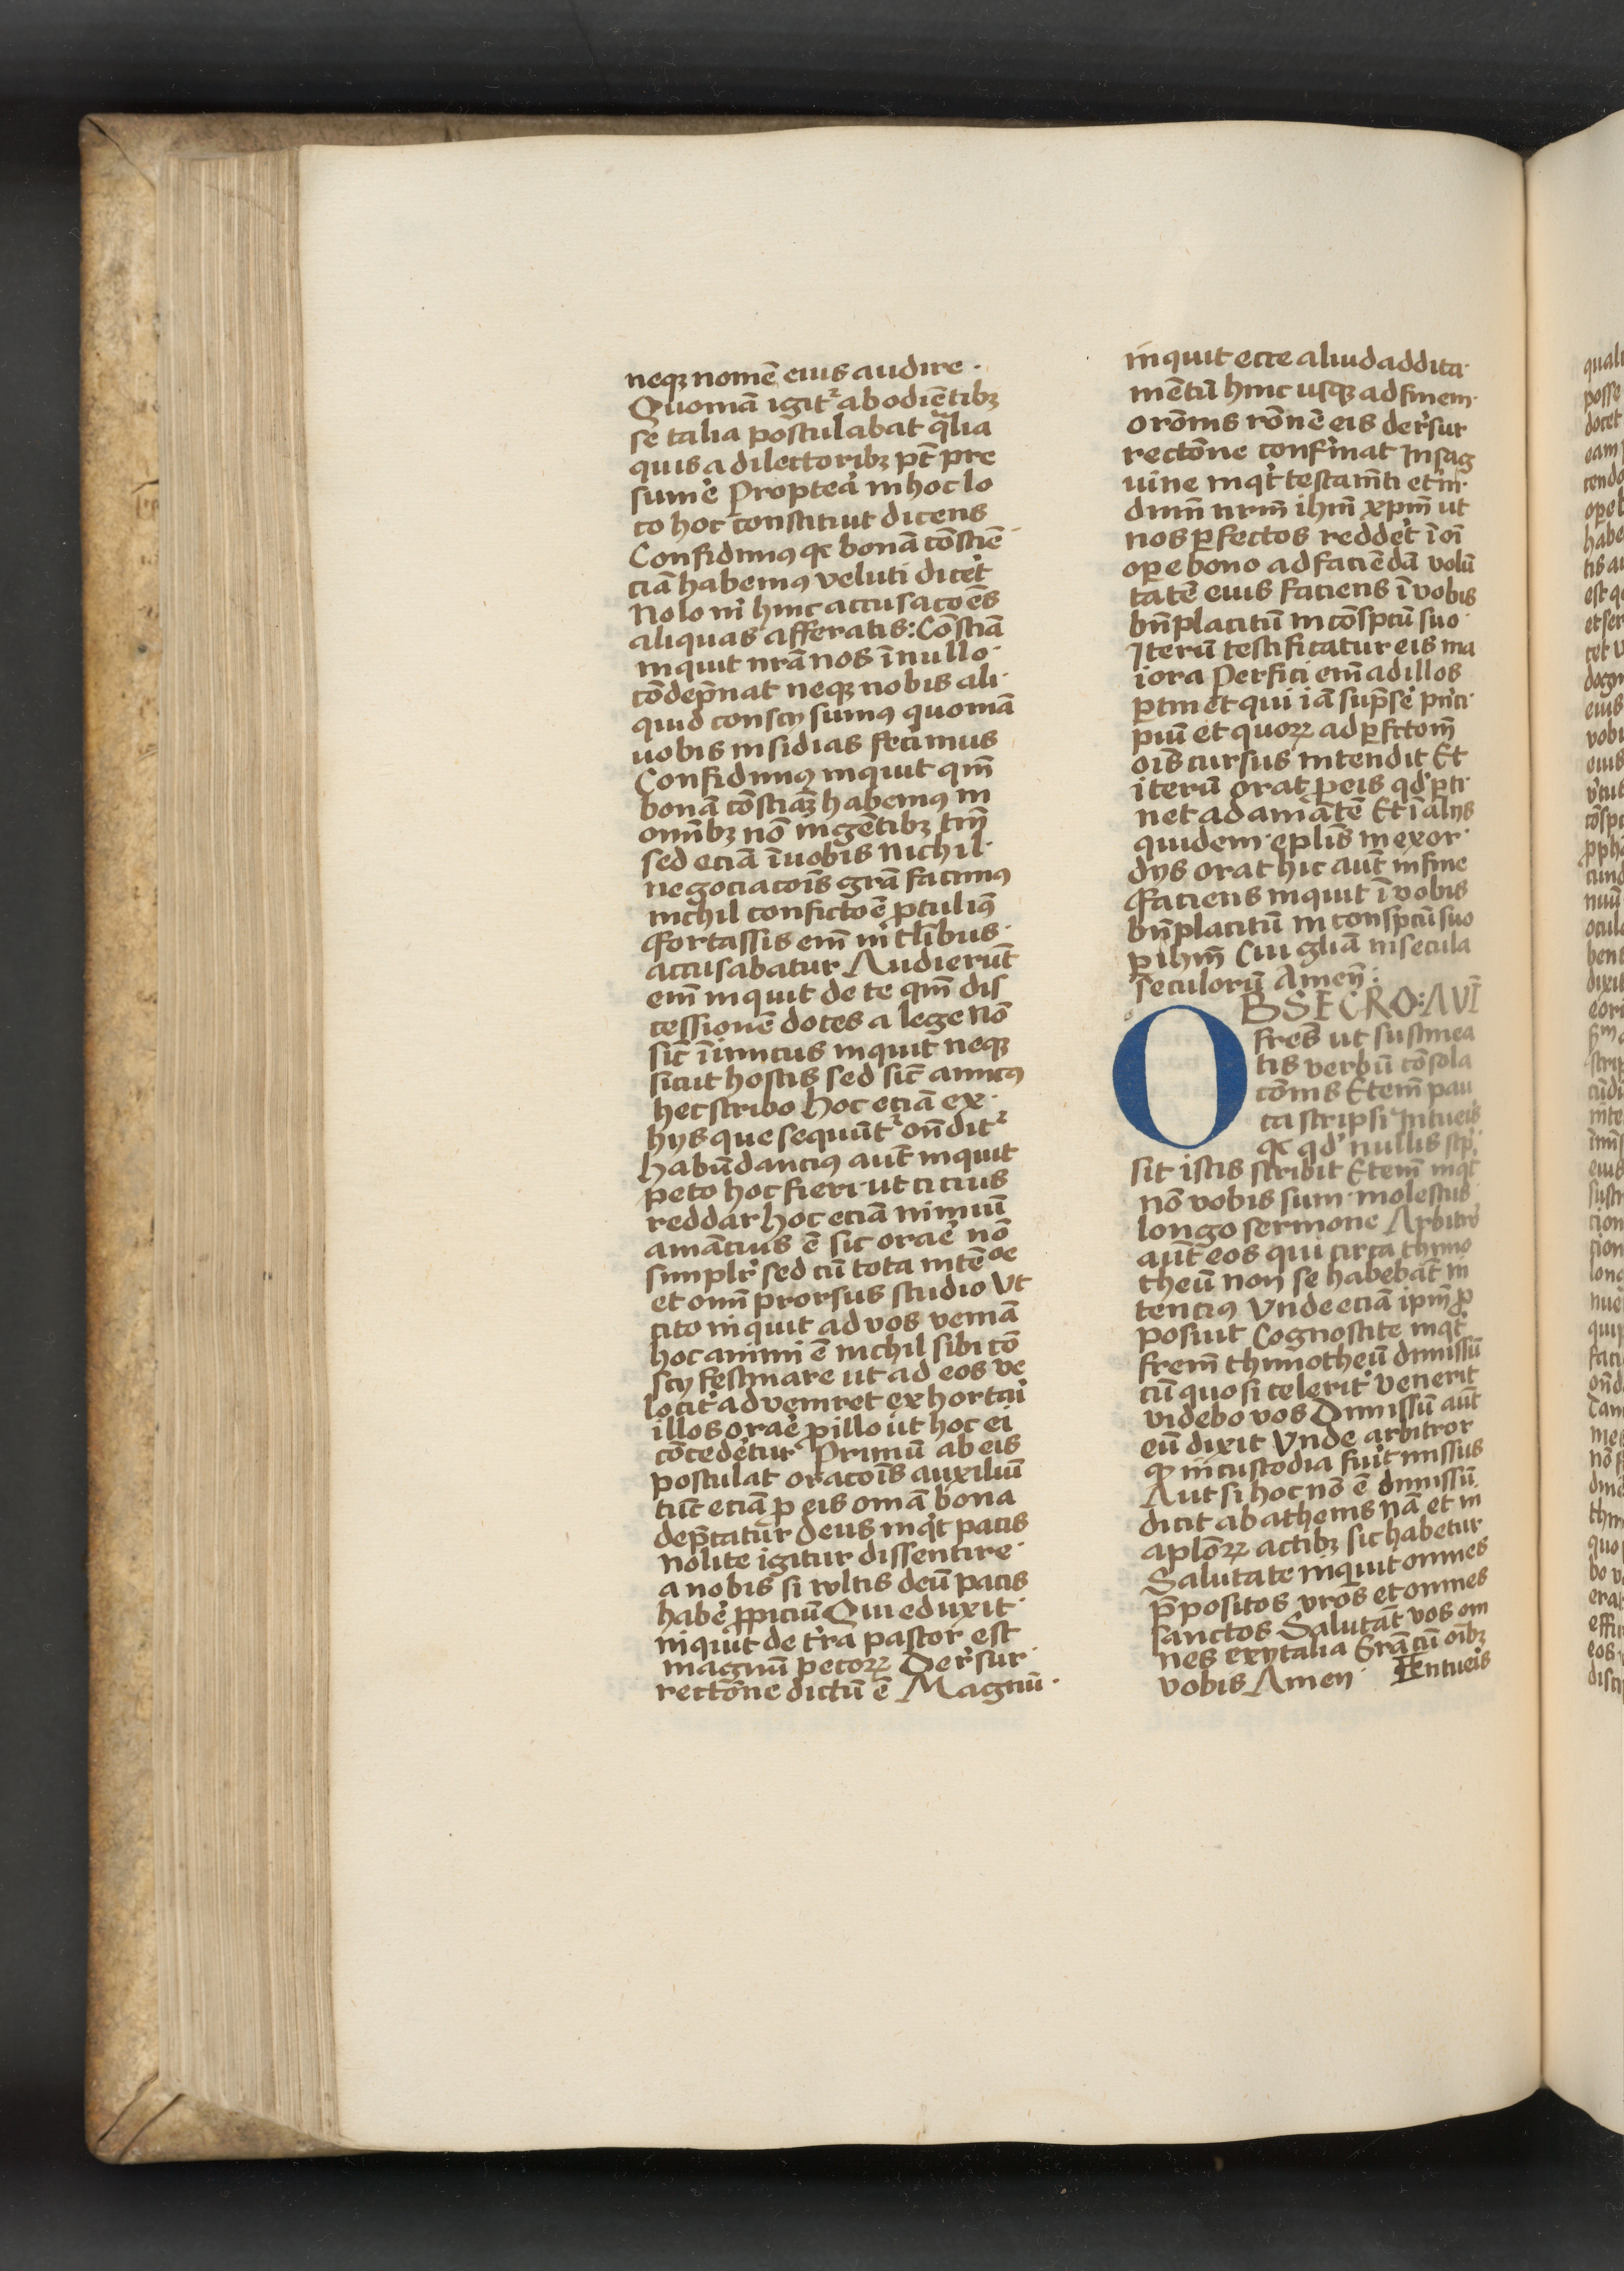 neqꝫ nomē eius audire ·
Quoniā igit᷑ ab odiētibꝫ
se talia postulabat q̄lia
quis a dilectoribꝫ pt̄ pre
sum̓e Proptea̓ in hoc lo
co hoc constituit dicens
Confidimꝰ qꝛ bonā cōsciē·
ciā habemꝰ veluti dicet̓
Nolo ni̓ hinc accusacōes
aliquas afferatis: Cōsciā
inquit nr̄ā nos ī nullo·
cōdep̄nat neqꝫ nobis ali·
quid conscij sumꝰ quoniā
uobis insidias fecimus
Confidimꝰ inquit qm̄
bonā cōsciaꝫ habemꝰ in
omībꝫ nō in gētibꝫ tm̄
sed eciā ī uobis nichil·
negociacōis gr̄a facimꝰ
nichil confictōe ꝓtulimꝰ
Fortassis em̄ in t̄libus·
accusabatur Audierūt
em̄ inquit de te qm̄ dis
cessionē doces a lege Nō
sic̄ īimicus inquit neqꝫ
sicut hostis sed sic̄ amicꝰ
hec scribo hoc eciā ex·
hijs que sequūt᷑ on̄dit᷑
habūdanciꝰ aut̄ inquit
peto hoc fieri· ut cicius
reddar hoc eciā nimiū
amācius ē sic orae̓ nō
simplr̓ sed cū tota intēoe
et om̄i prorsus studio Vt
cito inquit ad vos veniā
hoc animi ē nichil sibi cō
scij festinare ut ad eos ve
locit̓ adveniret exhortai̓
illos orae̓ ꝓ illo ut hoc ei
cōcedet̓ur Primū ab eis
postulat oracōis auxiliū
tūc eciā ꝓ eis om̄ia bona
dep̄catur deus inqt̓ pacis
nolite igitur dissentire·
a nobis si vultis deū pacis
habe̓ ꝓpiciū Qui eduxit·
inquit de tr̓ra pastor est
magnū pecorꝝ De rs̓ur·
rectōne dictū ē Magnū·
inquit ecce aliud addita·
mētū hinc usqꝫ ad finem·
orōnis rōnē eis de rs̓ur
rectōne confir̓mat In sag
uine inqt̓ testam̄ti et̓ni·
dnm̄ nrm̄ ihm̄ xpm̄ ut
nos ꝑfectos reddet̓ ī oī
oꝑe bono ad faciēdā volū
tatē eius faciens ī vobis
bn̄placitū in cōspcū suo·
Iterū testificatur eis ma
iora Perfici em̄ ad illos
ꝑtinet qui iā sup̄se̓ pn̓ci·
piū et quorꝝ ad ꝑfctōm̄
ois̄ cursus intendit Et
iterū orat ꝓ eis qd̓ ꝑti·
net ad amātē Et ī alijs
quidem· eplīs in exor·
dijs orat hic aut̄ in fine
Faciens inquit ī vobis
bn̄placitū in conspcū suo
ꝑ ihm̄ Cui glīa in secula
seculorū Amen̄ :
OBSECRO: AVT̄
fres̄ ut sustinea
tis verbū cōsola
cōnis Etem̄ pau
ca scripsi Intueis
qꝛ qd̓ nullis scp̓·
sit istis scribit Etem̄ inqt̓
nō vobis sum· molestus·
longo sermone Arbitro
aut̄ eos qui circa thimo
theū non se habebāt in
tenciꝰ Vnde eciā ipm̄ ꝓ
posuit Cognoscite inqt̓
frem̄ thimotheū dimissū
cū quo si celerit̓ venerit
videbo vos Dimissū aut̄
eū dixit Vnde arbitror
ꝙ in custodia fuit missus
Aut si hoc nō ē dimissū
dicit ab athenis nā et in
aplōrꝝ actibꝫ sic habetur
Salutate inquit omnes
p̄positos vrōs et omnes
sanctos Salutāt vos om
nes ex ytalia Grā cū oībꝫ
vobis Amen· Intueis